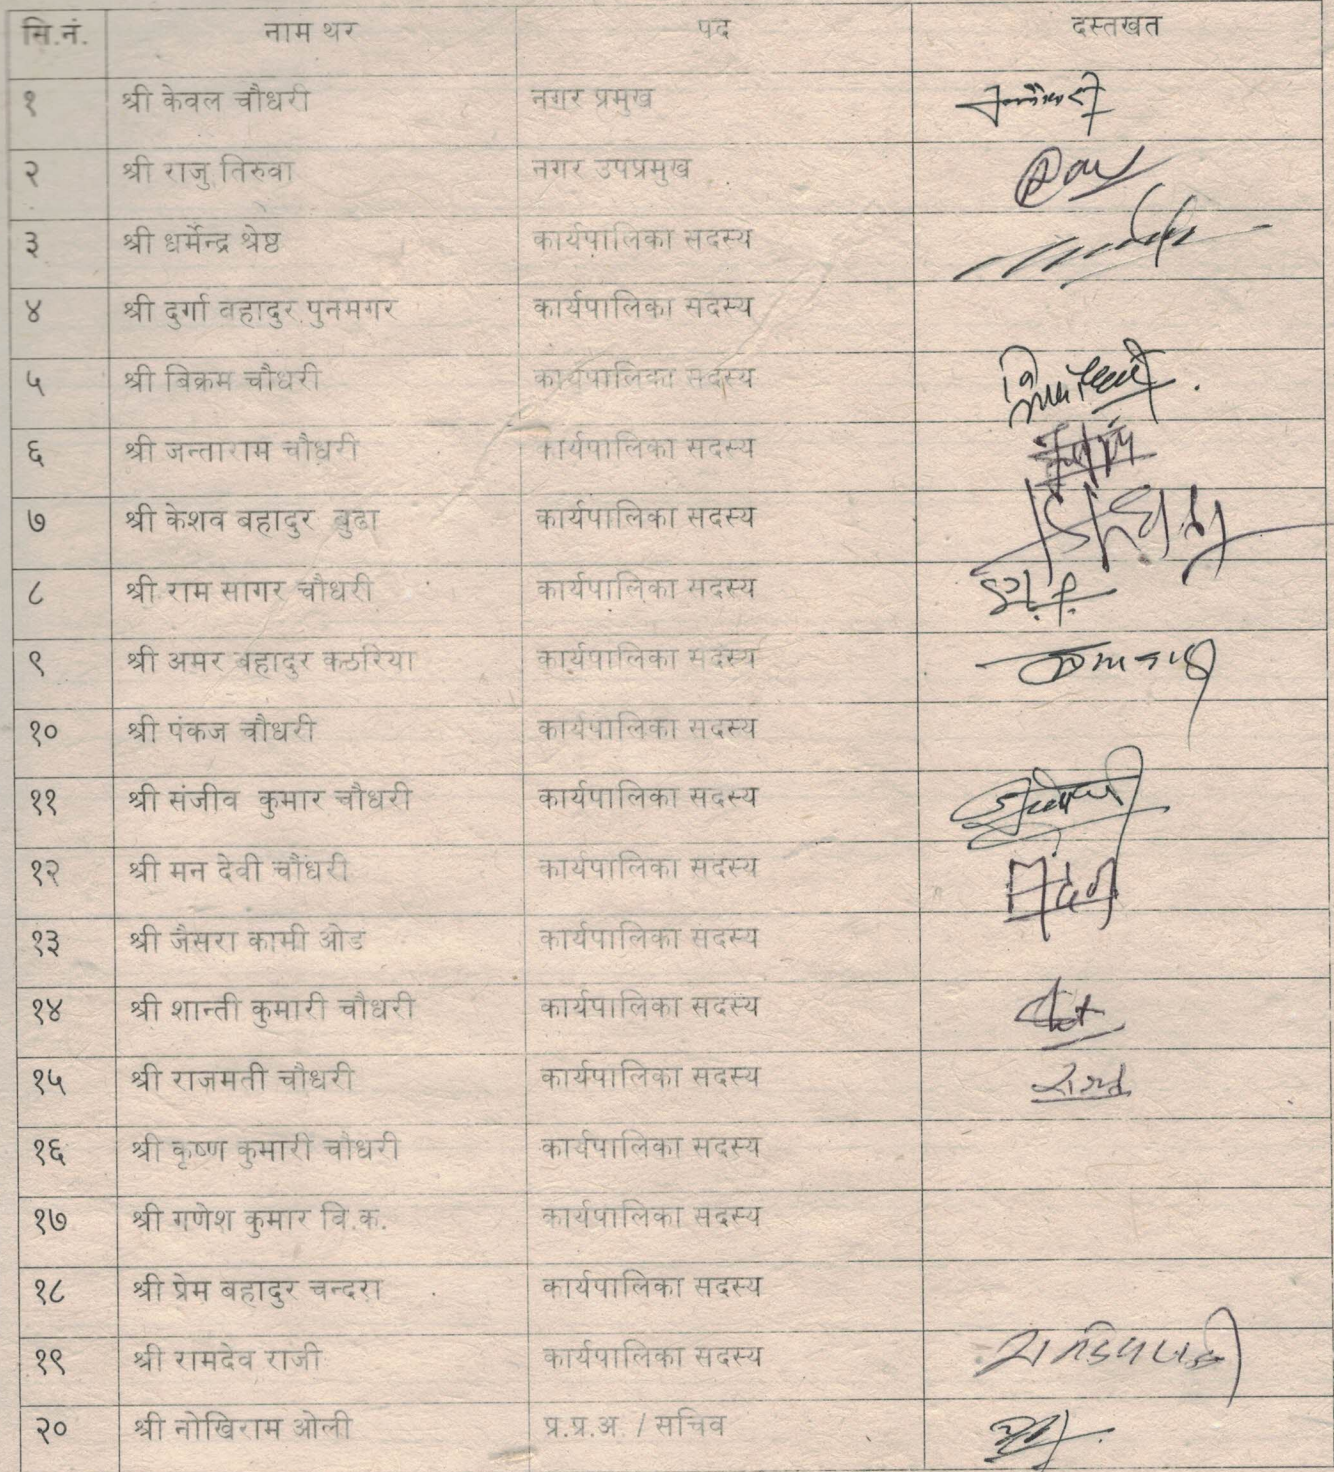 सि.नं. नाम थर पद दस्तखत
१ श्री केवल चौधरी नगर प्रमुख
२ श्री राजु तिरुवा नगर उपप्रमुख
३ श्री धर्मेन्द्र श्रेष्ठ कार्यपालिका सदस्य
४ श्री दुर्गा वहादुर पुनमगर कार्यपालिका सदस्य
५ श्री बिक्रम चौधरी कार्यपालिका सदस्य
६ श्री जन्ताराम चौधरी कार्यपालिका सदस्य
७ श्री केशव बहादुर बुढा कार्यपालिका सदस्य
८ श्री राम सागर चौधरी कार्यपालिका सदस्य
९ श्री अमर बहादुर कठरिया कार्यपालिका सदस्य
१० श्री पंकज चौधरी कार्यपालिका सदस्य
११ श्री संजीव कुमार चौधरी कार्यपालिका सदस्य
१२ श्री मन देवी चौधरी कार्यपालिका सदस्य
१३ श्री जैसरा कामी ओड कार्यपालिका सदस्य
१४ श्री शान्ती कुमारी चौधरी कार्यपालिका सदस्य
१५ श्री राजमती चौधरी कार्यपालिका सदस्य
१६ श्री कृष्ण कुमारी चौधरी कार्यपालिका सदस्य
१७ श्री गणेश कुमार वि.क. कार्यपालिका सदस्य
१८ श्री प्रेम बहादुर चन्दरा कार्यपालिका सदस्य
१९ श्री रामदेव राजी कार्यपालिका सदस्य
२० श्री नोखिराम ओली प्र.प्र.अ. / सचिव